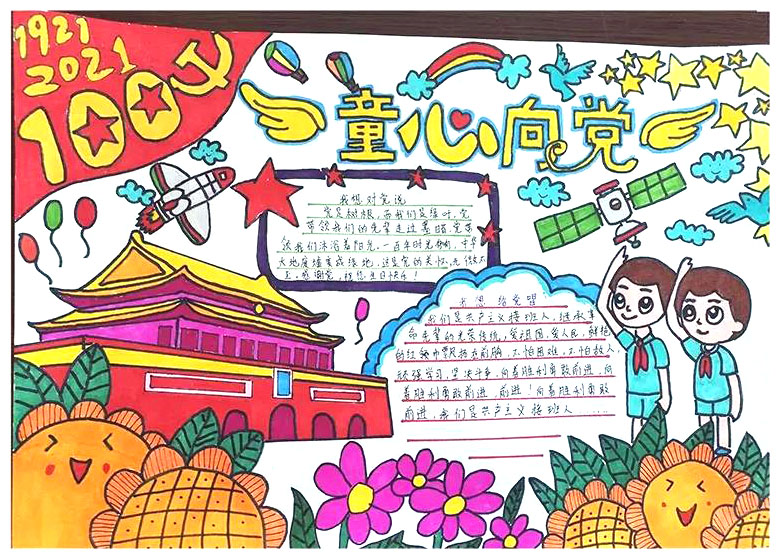 1921
2021
100
童心向党
我想对党说
党是树根,而我们是绿叶,党
带领我们的先辈走过黑暗,党带
领我们沐浴着阳光,一百年时光
大地废墟变成绿地,这是党的关怀
感谢党,祝您生日快乐!
我们是共产主义接班人,继承革
命先辈的光荣传统,爱祖国,爱人民,鲜艳
的红领巾飘扬在前胸,不怕困难,不怕敌人,
顽强学习,坚决斗争,向着胜利勇敢前进,向
着胜利勇敢前进,前进!向着胜利勇敢
前进,我们是共产主义接班人......